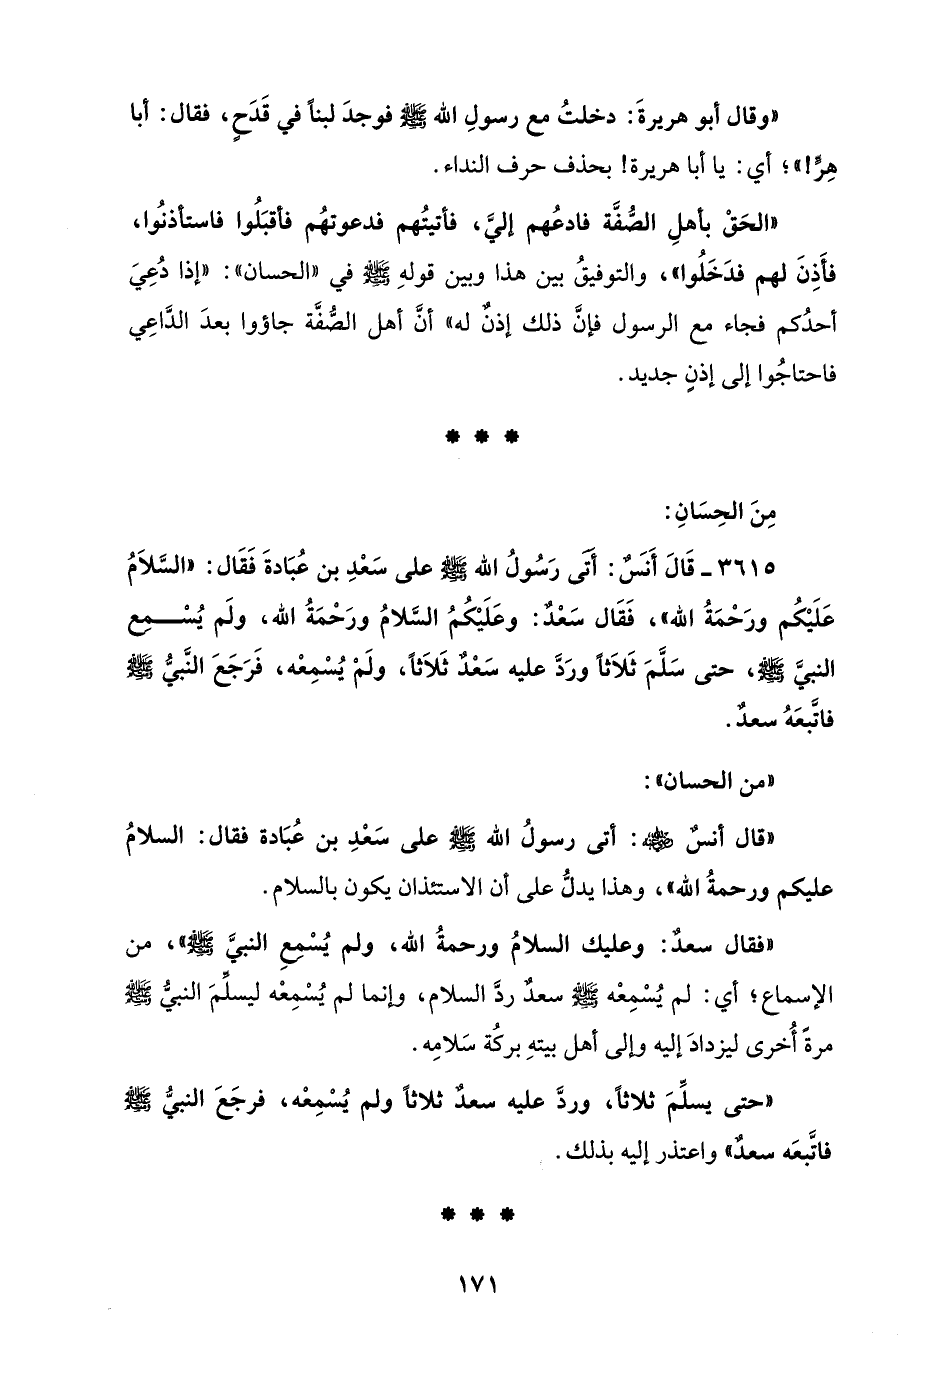 «وقال أبو هريرةَ: دخلتُ مع رسولِ الله ﷺ فوجدَ لبناً في قَدَحٍ، فقال: أبا
هِرٍّ!»؛ أي: يا أبا هريرة! بحذف حرف النداء.
«الحَقْ بأهلِ الصُّفَّة فادعُهم إليَّ، فأتيتُهم فدعوتهُم فأقبَلُوا فاستأذنُوا،
فأَذِنَ لهم فدَخَلُوا»، والتوفيقُ بين هذا وبين قولهِ ﷺ في «الحسان»: «إذا دُعِيَ
أحدُكم فجاء مع الرسول فإنَّ ذلك إذنٌ له» أنَّ أهل الصُّفَّة جاؤوا بعدَ الدَّاعِي
فاحتاجُوا إلى إذنٍ جديد.
* * *
مِنَ الحِسَانِ:
٣٦١٥ ـ قَالَ أَنَسٌ: أَتَى رَسُولُ الله ﷺ على سَعْدِ بن عُبَادةَ فَقَال: «السَّلاَمُ
عَلَيْكُم ورَحْمَةُ الله»، فَقَال سَعْدٌ: وعَلَيْكُمُ السَّلامُ ورَحْمَةُ الله، ولَم يُسْمِعِ
النبيَّ ﷺ، حتى سَلَّمَ ثَلاَثاً وردَّ عليه سَعْدٌ ثَلاَثاً، ولَمْ يُسْمِعْه، فَرَجَعَ النَّبيُّ ﷺ
فاتَّبعَهُ سعدٌ.
«من الحسان»:
«قال أنسٌ ﵁: أتى رسولُ الله ﷺ على سَعْدِ بن عُبَادة فقال: السلامُ
عليكم ورحمةُ الله»، وهذا يدلُّ على أن الاستئذان يكون بالسلام.
«فقال سعدٌ: وعليك السلامُ ورحمةُ الله، ولم يُسْمِعِ النبيَّ ﷺ»، من
الإسماع؛ أي: لم يُسْمِعْه ﷺ سعدٌ ردَّ السلام، وإنما لم يُسْمِعْه ليسلِّمَ النبيُّ ﷺ
مرةً أُخرى ليزدادَ إليه وإلى أهل بيتهِ بركُة سَلامِه.
«حتى يسلِّمَ ثلاثاً، وردَّ عليه سعدٌ ثلاثاً ولم يُسْمِعْه، فرجَعَ النبيُّ ﷺ
فاتَّبعَه سعدٌ» واعتذر إليه بذلك.
* * *
١٧١